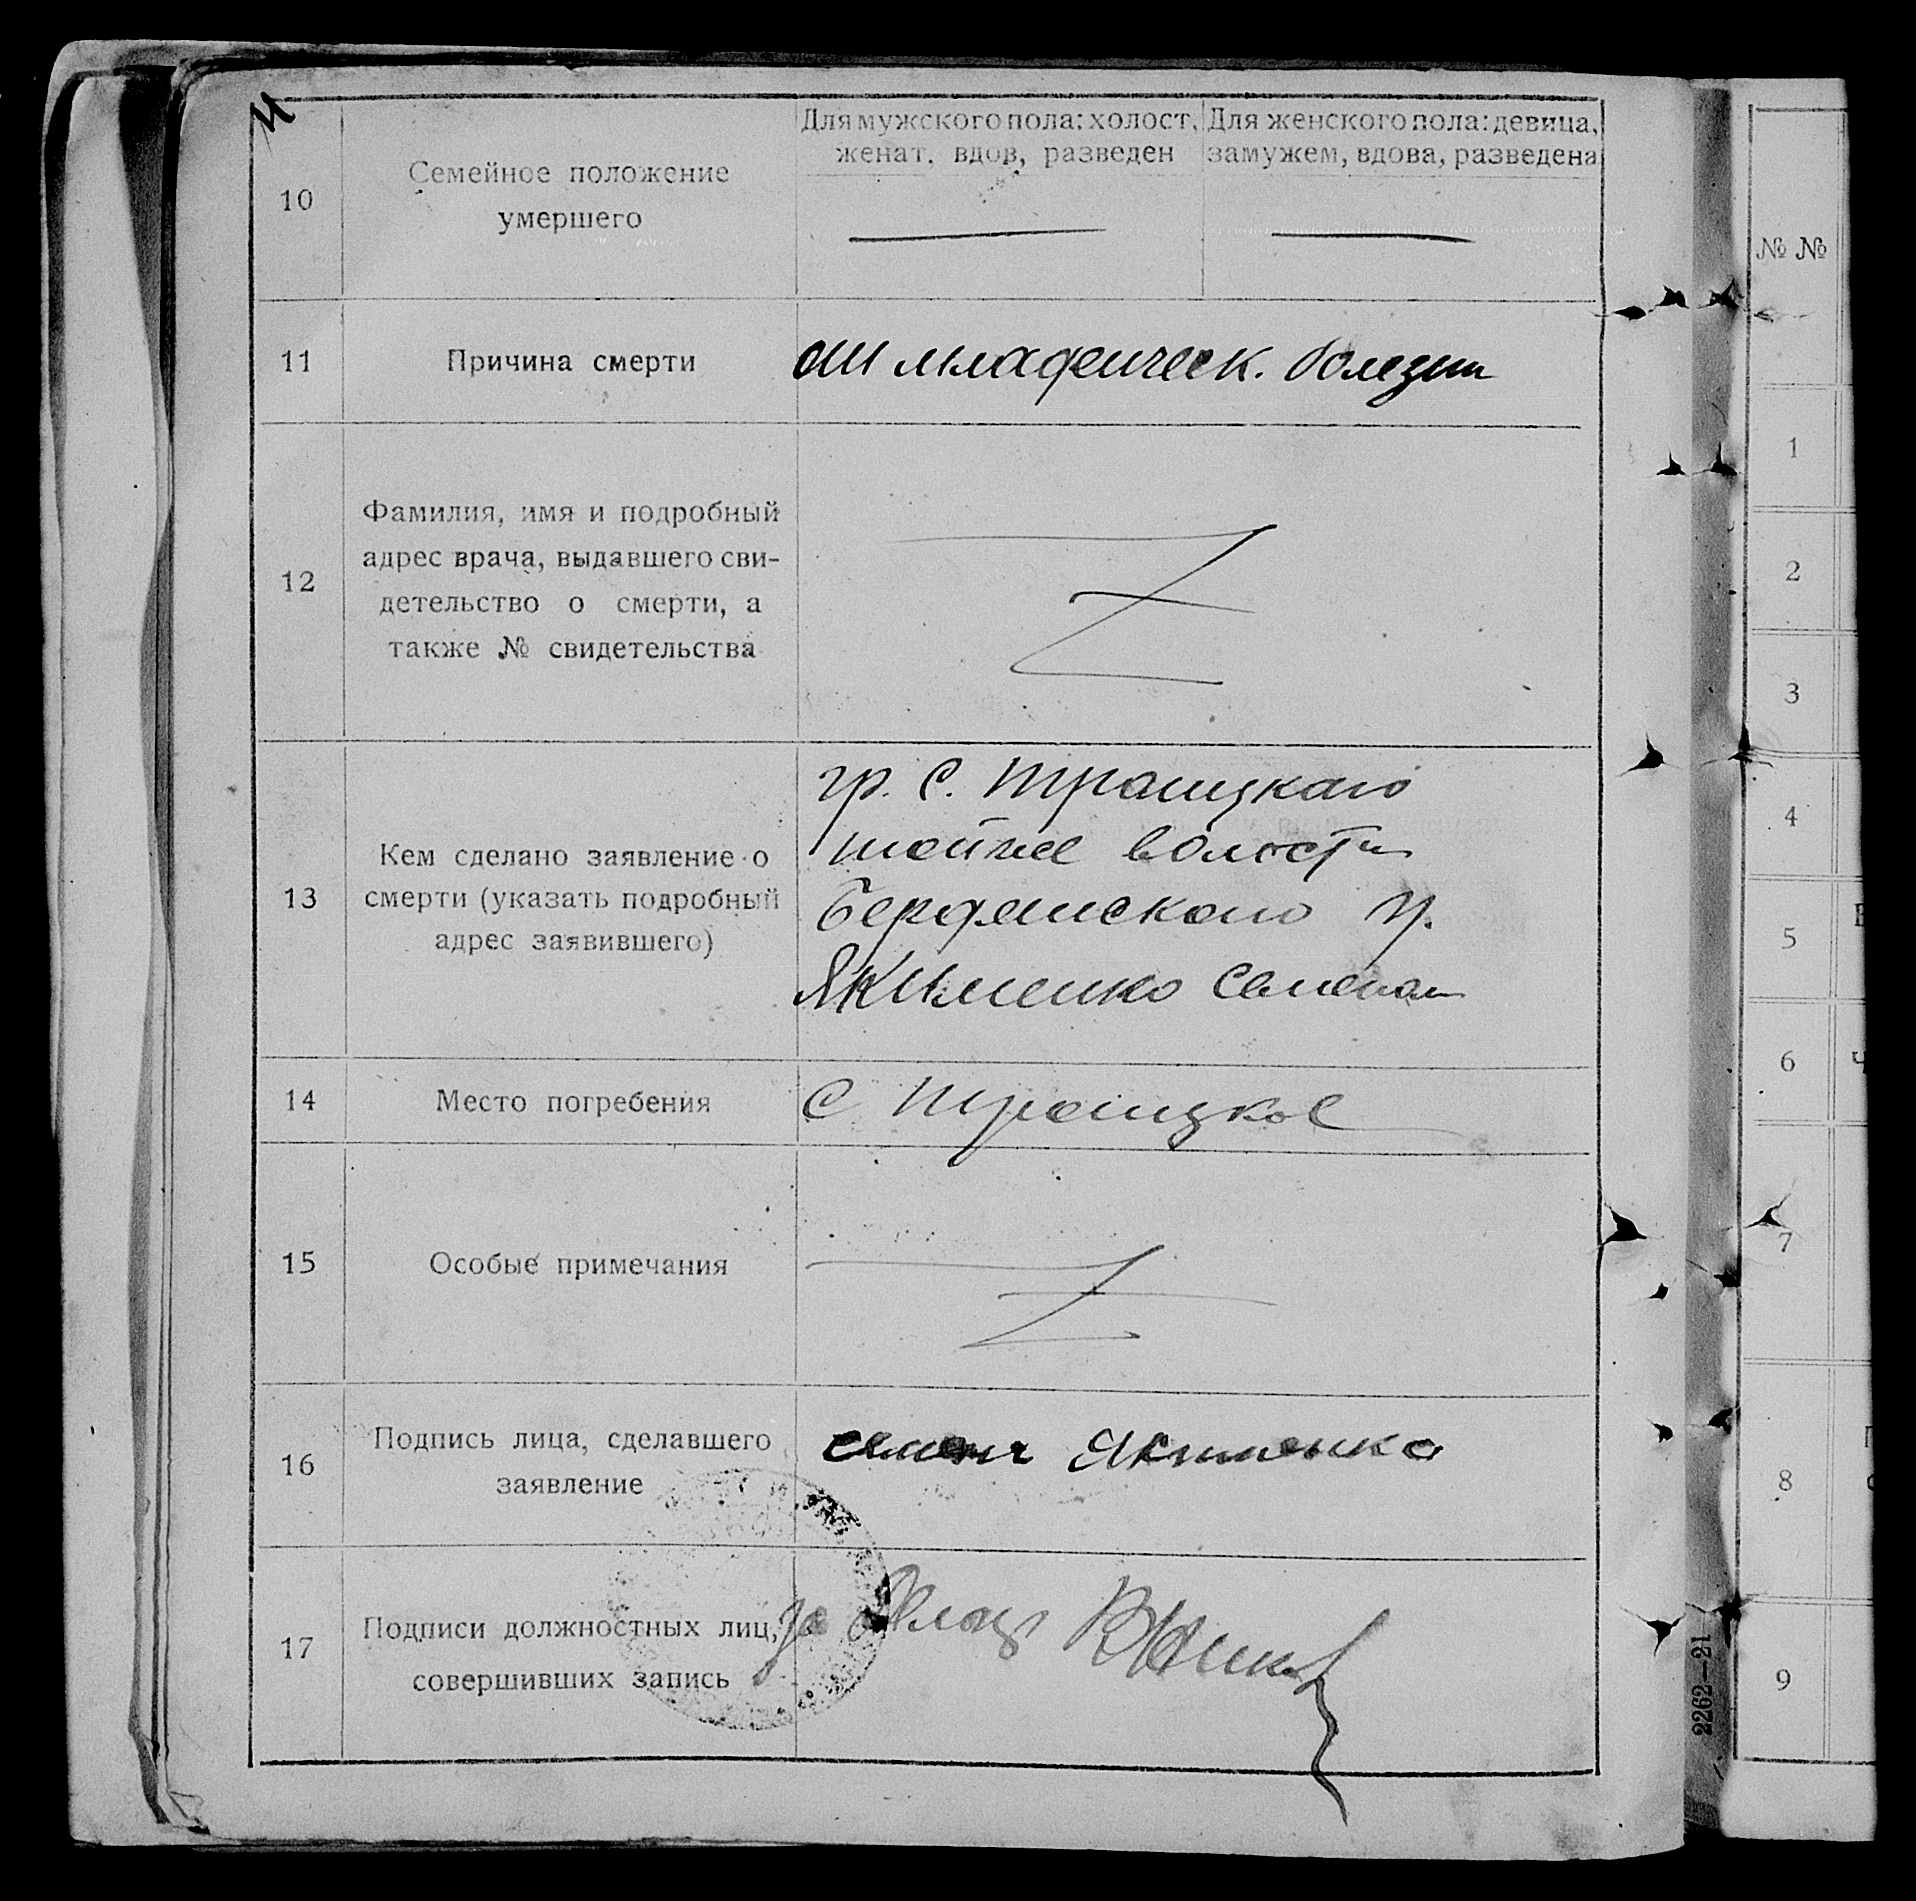 Для мужского пола: холост, женат, вдов, разведен
Для женского пола: девица, замужем, вдова, разведена
10
Семейное положение
умершего
11
Причина смерти
от младенческ. болезни
12
Фамилия, имя и подробный
адрес врача, выдавшего сви-
детельство о смерти, а
также № свидетельства
13
Кем сделано заявление о
смерти (указать подробный
адрес заявившего)
гр. С. Троицкаго
тойже волости
Бердянского у.
Якименко Семеном
14
Место погребения
С Троицкое
15
Особые примечания
16
Подпись лица, сделавшего
заявление
семен Якименко
17
Подписи должностных лиц,
совершивших запись
за
2262—21
№ №
1
2
3
4
5
6
7
8
9